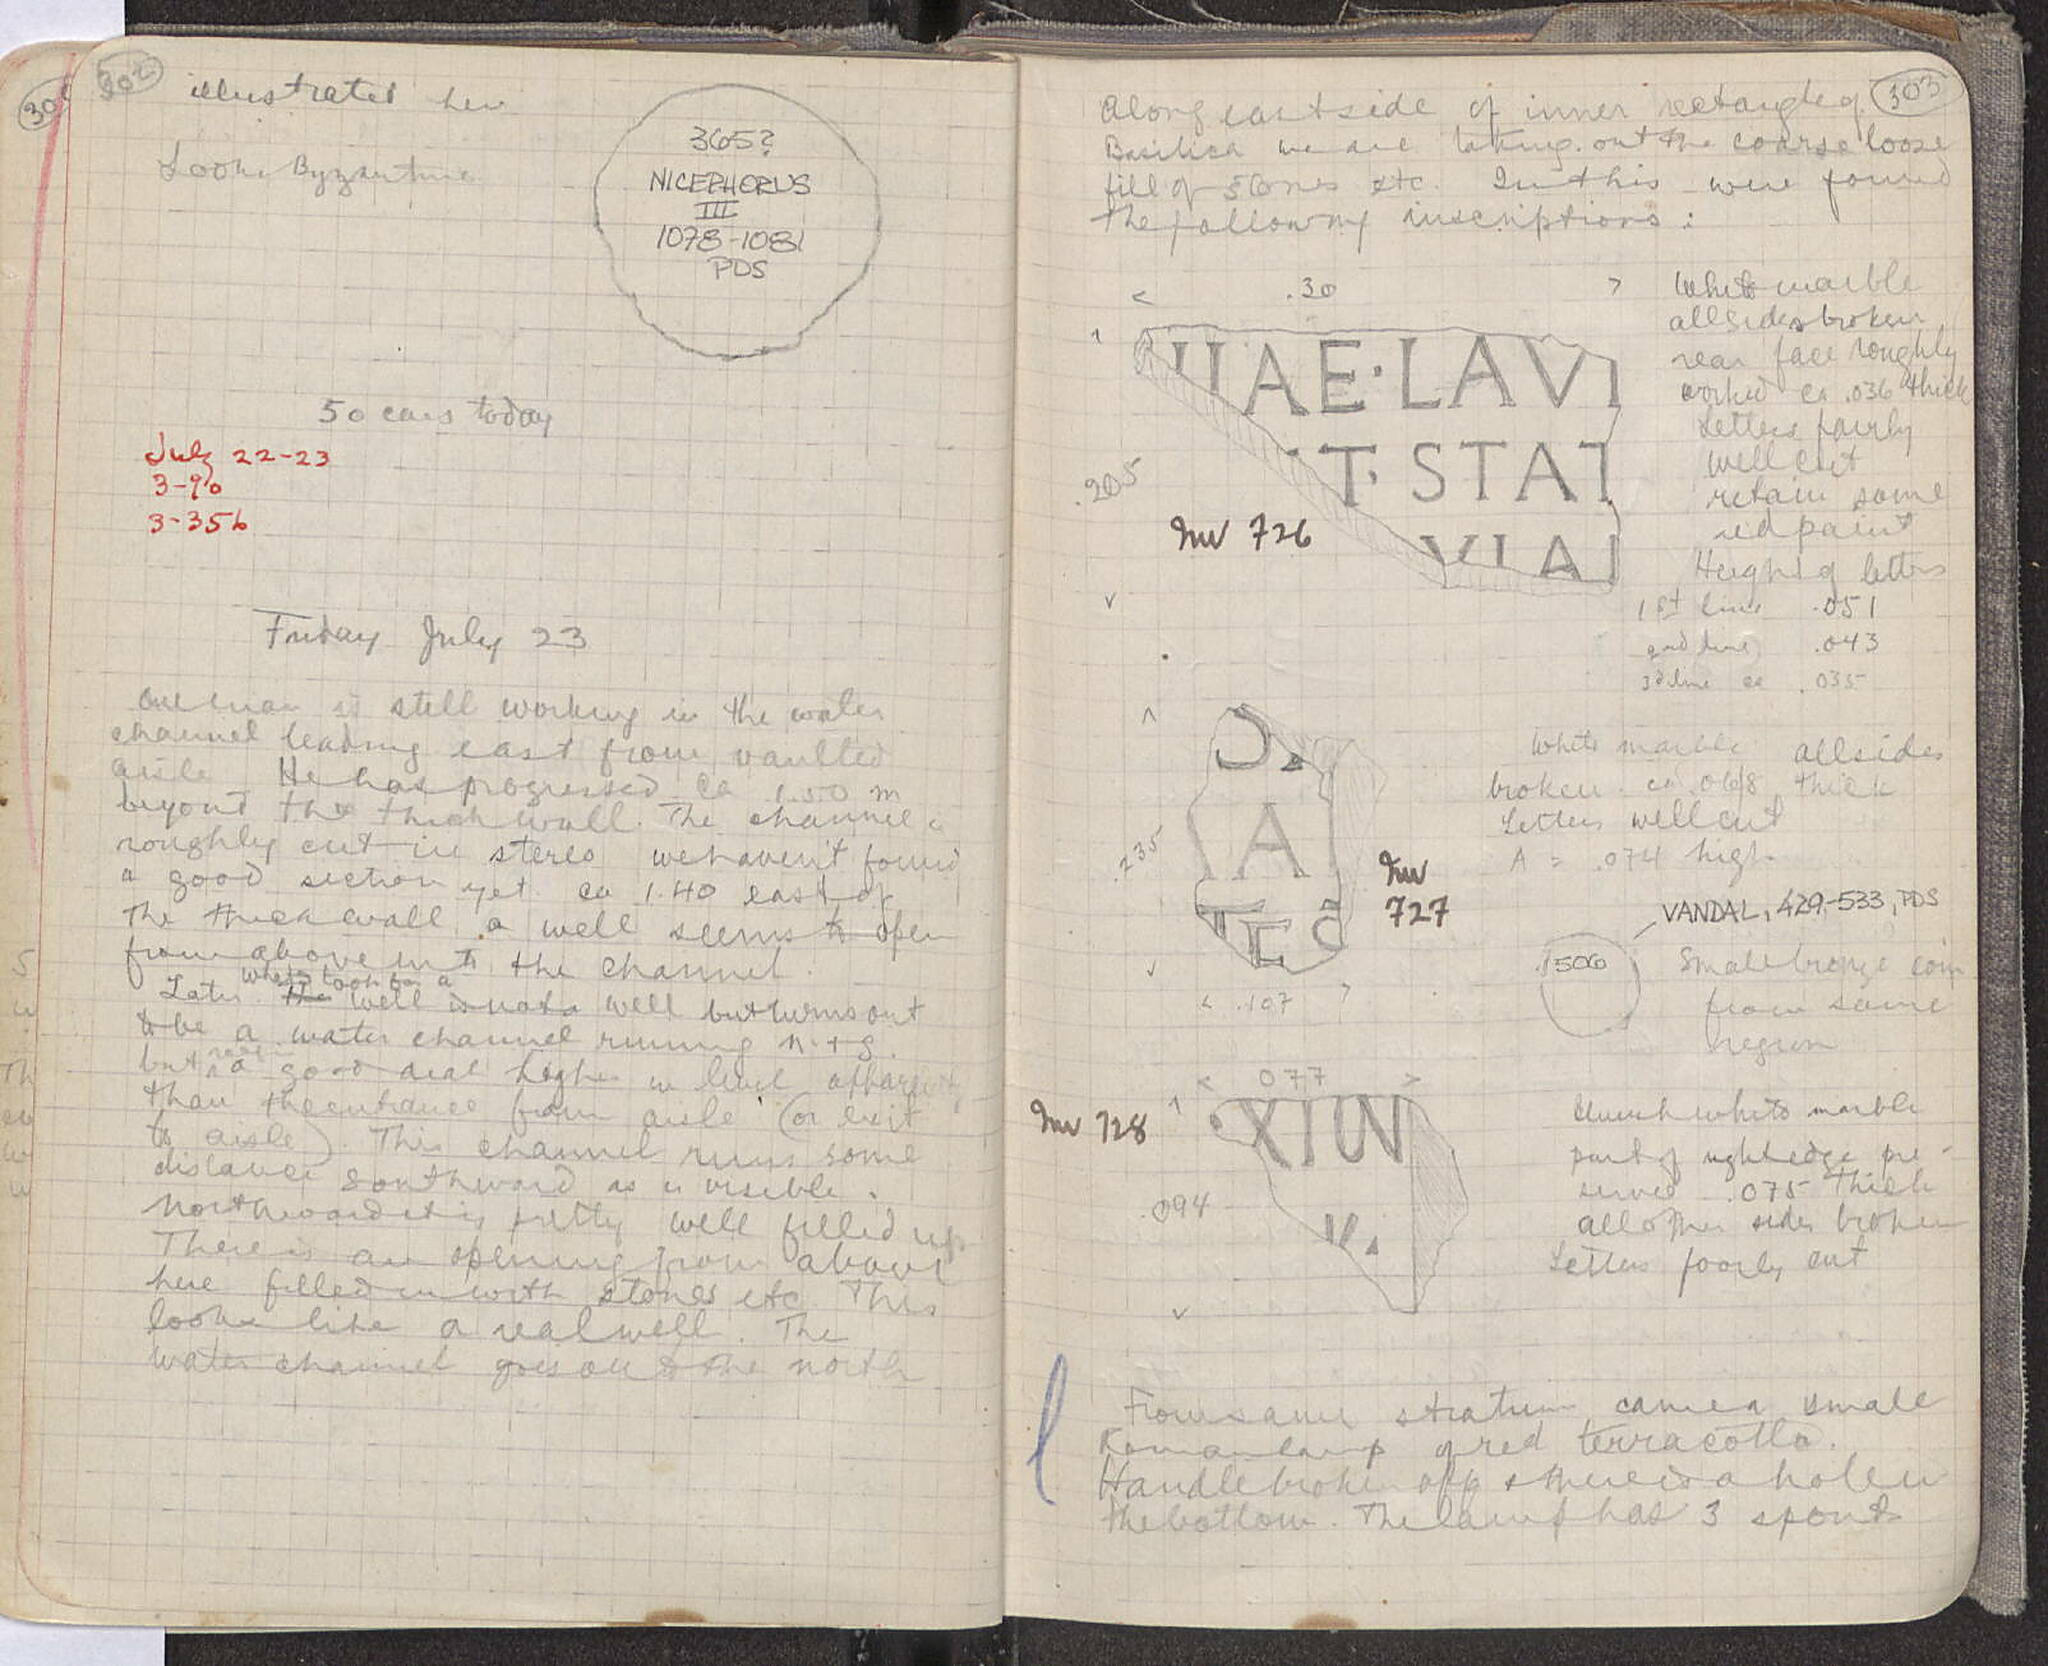 302
illustrated here
Looks Byzantine
365?
NICEPHORUS
III
1078-1081
PDS
50 cars today
July 22-23
3-90
3-356
Friday July 23
One man is still working in the water
channel leading east from vaulted
aisle. He has progressed ca 1.50 m
beyond the thick wall. The channel is
roughly cut in stereo we haven't found
a good section yet. ca 1.40 east of
the thick wall a well seems to open
from above into the channel.
Later what I took for a well is not a well but turns out
to be a water channel running n. + s.
but a good deal higher in level apparently
than the entrance from aisle (or exit
to aisle). This channel runs some
distance southward as is visible.
Northward it is pretty well filled up.
There is an opening from above
here filled in with stones etc. This
looks like a real well. The
water channel goes on to the north
303
Along east side of inner rectangle of
Basilica we are taking out the coarse loose
fill of stones etc. In this were found
the following inscriptions:
< .30 >
White marble
all sides broken
rear face roughly
worked ca .036 thick
Letters fairly
well cut
retain some
red paint
Height of letters
1st line .051
2nd line .043
3d line ca .035
.205
IIAE·LAVI
T·STAT
VIAI
Inv 726
White marble all sides
broken. ca .068 thick
Letters well cut
A = .074 high.
.235
A
Inv
727
< .107 >
VANDAL, 429-533, PDS
506
Small bronze coin
from same
region
< 077 >
Inv 728
XIW
.094
white marble
part of right edge pre-
served .075 thick
all other sides broken
Letters poorly cut
From same stratum came a small
Roman lamp of red terracotta.
Handle broken off & there is a hole in
the bottom. The lamp has 3 spouts